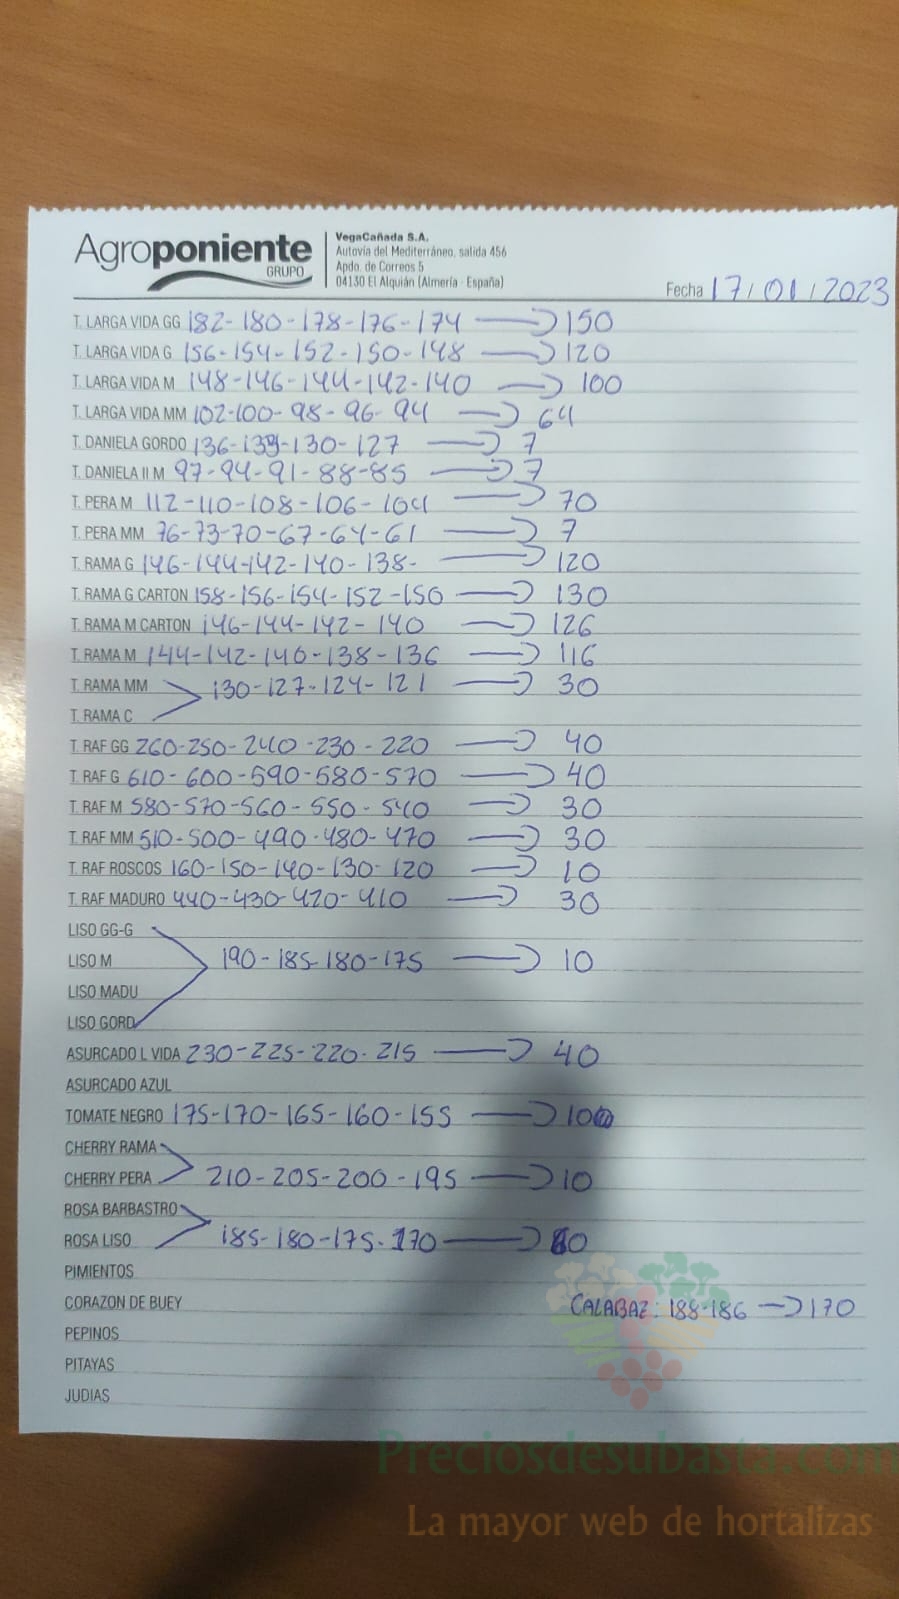 Agroponiente
GRUPO
VegaCañada S.A.
Autovía del Mediterráneo, salida 456
Apdo. de Correos 5
04130 El Alquián (Almería - España)
Fecha 17/01/2023
T. LARGA VIDA GG 182-180-178-176-174 → 150
T. LARGA VIDA G 156-154-152-150-148 → 120
T. LARGA VIDA M 148-146-144-142-140 → 100
T. LARGA VIDA MM 102-100-98-96-94 → 64
T. DANIELA GORDO 136-133-130-127 → 7
T. DANIELA II M 97-94-91-88-85 → 7
T. PERA M 112-110-108-106-104 → 70
T. PERA MM 76-73-70-67-64-61 → 7
T. RAMA G 146-144-142-140-138- → 120
T. RAMA G CARTON 158-156-154-152-150 → 130
T. RAMA M CARTON 146-144-142-140 → 126
T. RAMA M 144-142-140-138-136 → 116
T. RAMA MM 130-127-124-121 → 30
T. RAMA C
T. RAF GG 260-250-240-230-220 → 40
T. RAF G 610-600-590-580-570 → 40
T. RAF M 580-570-560-550-540 → 30
T. RAF MM 510-500-490-480-470 → 30
T. RAF ROSCOS 160-150-140-130-120 → 10
T. RAF MADURO 440-430-420-410 → 30
LISO GG-G
LISO M 190-185-180-175 → 10
LISO MADU
LISO GORD
ASURCADO L VIDA 230-225-220-215 → 40
ASURCADO AZUL
TOMATE NEGRO 175-170-165-160-155 → 10
CHERRY RAMA
CHERRY PERA 210-205-200-195 → 10
ROSA BARBASTRO
ROSA LISO 185-180-175-170 →
PIMIENTOS
CORAZON DE BUEY CALABAZ: 188-186 → 170
PEPINOS
PITAYAS
JUDIAS
Preciosdesubasta.com
La mayor web de hortalizas